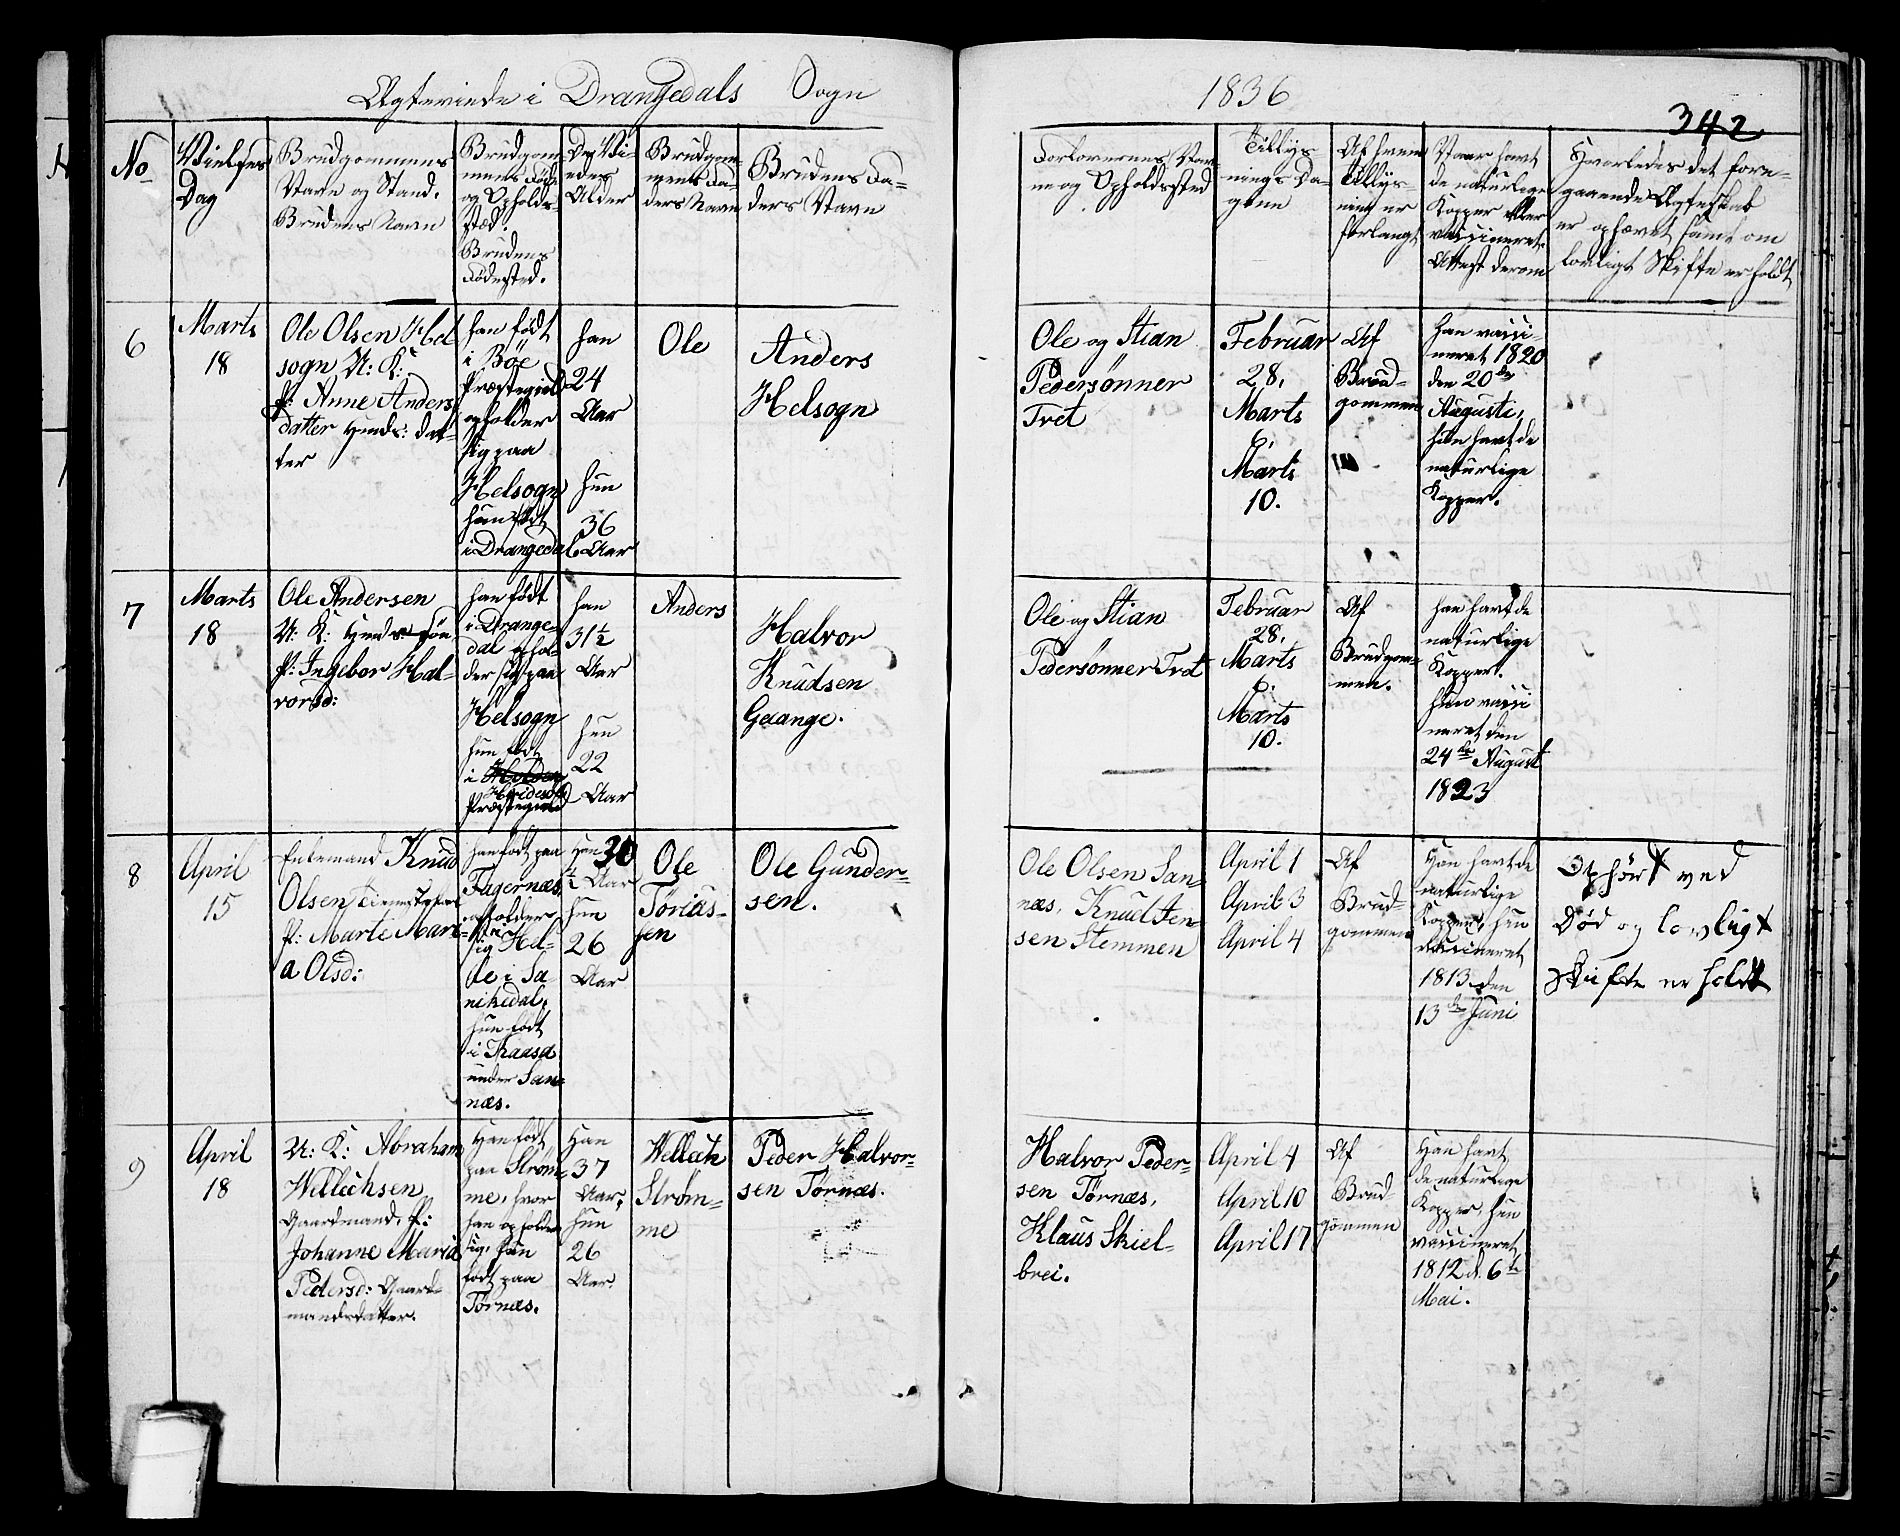 Ægteviede i Drangedals Sogn
1836
342
No
Vielses
Dag
Brudgommens
Navn og Stand.
Brudens Navn
Brudgom-
mens Føde
og Opholds-
sted.
Brudens
Fødested.
De Vi-
edes
Alder
Brudgom-
mens Fa-
ders Navn
Brudens Fa-
ders Navn
Forlovernes Nav-
ne og Opholdssted
Tillys-
nings Da-
gene
Af hvem
Tillys-
ning er
forlangt
Naar havt
de naturlige
Kopper eller
vaccineret.
Attest derom
Hvorledes det fore-
gaaende Ægteskab
er ophævet samt om
lovligt Skifte er holdt
6
Marts
18
Ole Olsen Hel
sogn U: K:
P: Anne Anders
datter
datter
han født
i Böe
Præstegield
opholder
sig paa
Helsogn
hun født
i Drangedal
han
24
Aar
hun
36
Aar
Ole
Anders
Helsogn
Ole og Stian
Pedersønner
Tvet
Februar
28,
Marts
6,
Marts
10.
Af
Brud-
gommen
han vacci
neret 1820
den 20de
Augusti,
hun havt de
naturlige
Kopper.
7
Marts
18
Ole Andersen
U: K:
P: Ingebor Hal-
vorsd:
han født
i Drange-
dal ophol-
der sig paa
Helsogn
hun født
i
Præstegield
han
31½
Aar
hun
22
Aar
Anders
Halvor
Knudsen
Ole og Stian
Pedersønner Tvet
Februar
28,
Marts
6.
Marts
10.
Af
Brudgom-
men.
han havt de
naturlige
Kopper.
hun vacci
neret den
24de August
1823
8
April
15
Enkemand Knud
Olsen
P: Marte Mari-
a Olsd:
han født paa
Fagernæs,
opholder
sig i Hel-
le i Sa-
nikedal,
hun født
i Kaasa
under San-
næs.
Han 30
½ Aar
hun
26
Aar
Ole
Toriäs-
sen
Ole Gunder-
sen.
Ole Olsen San-
næs, Knud Jen-
sen Stemmen
April 1
April 3
April 4
Af
Brud-
gommen
Han havt de
naturlige
Kopper, hun
vaccineret
1813 den
13de Juni
Ophørt ved
Død og lovligt
skifte er holdt
9
April
18
U: K: Abraham
Wellechsen
Gaardmand, P:
Johanne Maria
Pedersd: Gaard-
mandsdatter.
Han født
paa Strøm-
me, hvor
han opholder
sig, hun
født paa
Tørnæs.
Han
37
Aar,
hun
26
Aar.
Wellech
Strøm-
me
Peder Halvor-
sen Tørnæs.
Halvor Peder-
sen Tørnæs,
Klaus Skiel-
brei.
April 4
April 10
April 17
Af
Brud-
gommen
Han havt
de naturlige
Kopper, hun
vaccineret
1812 d. 6te
Mai.